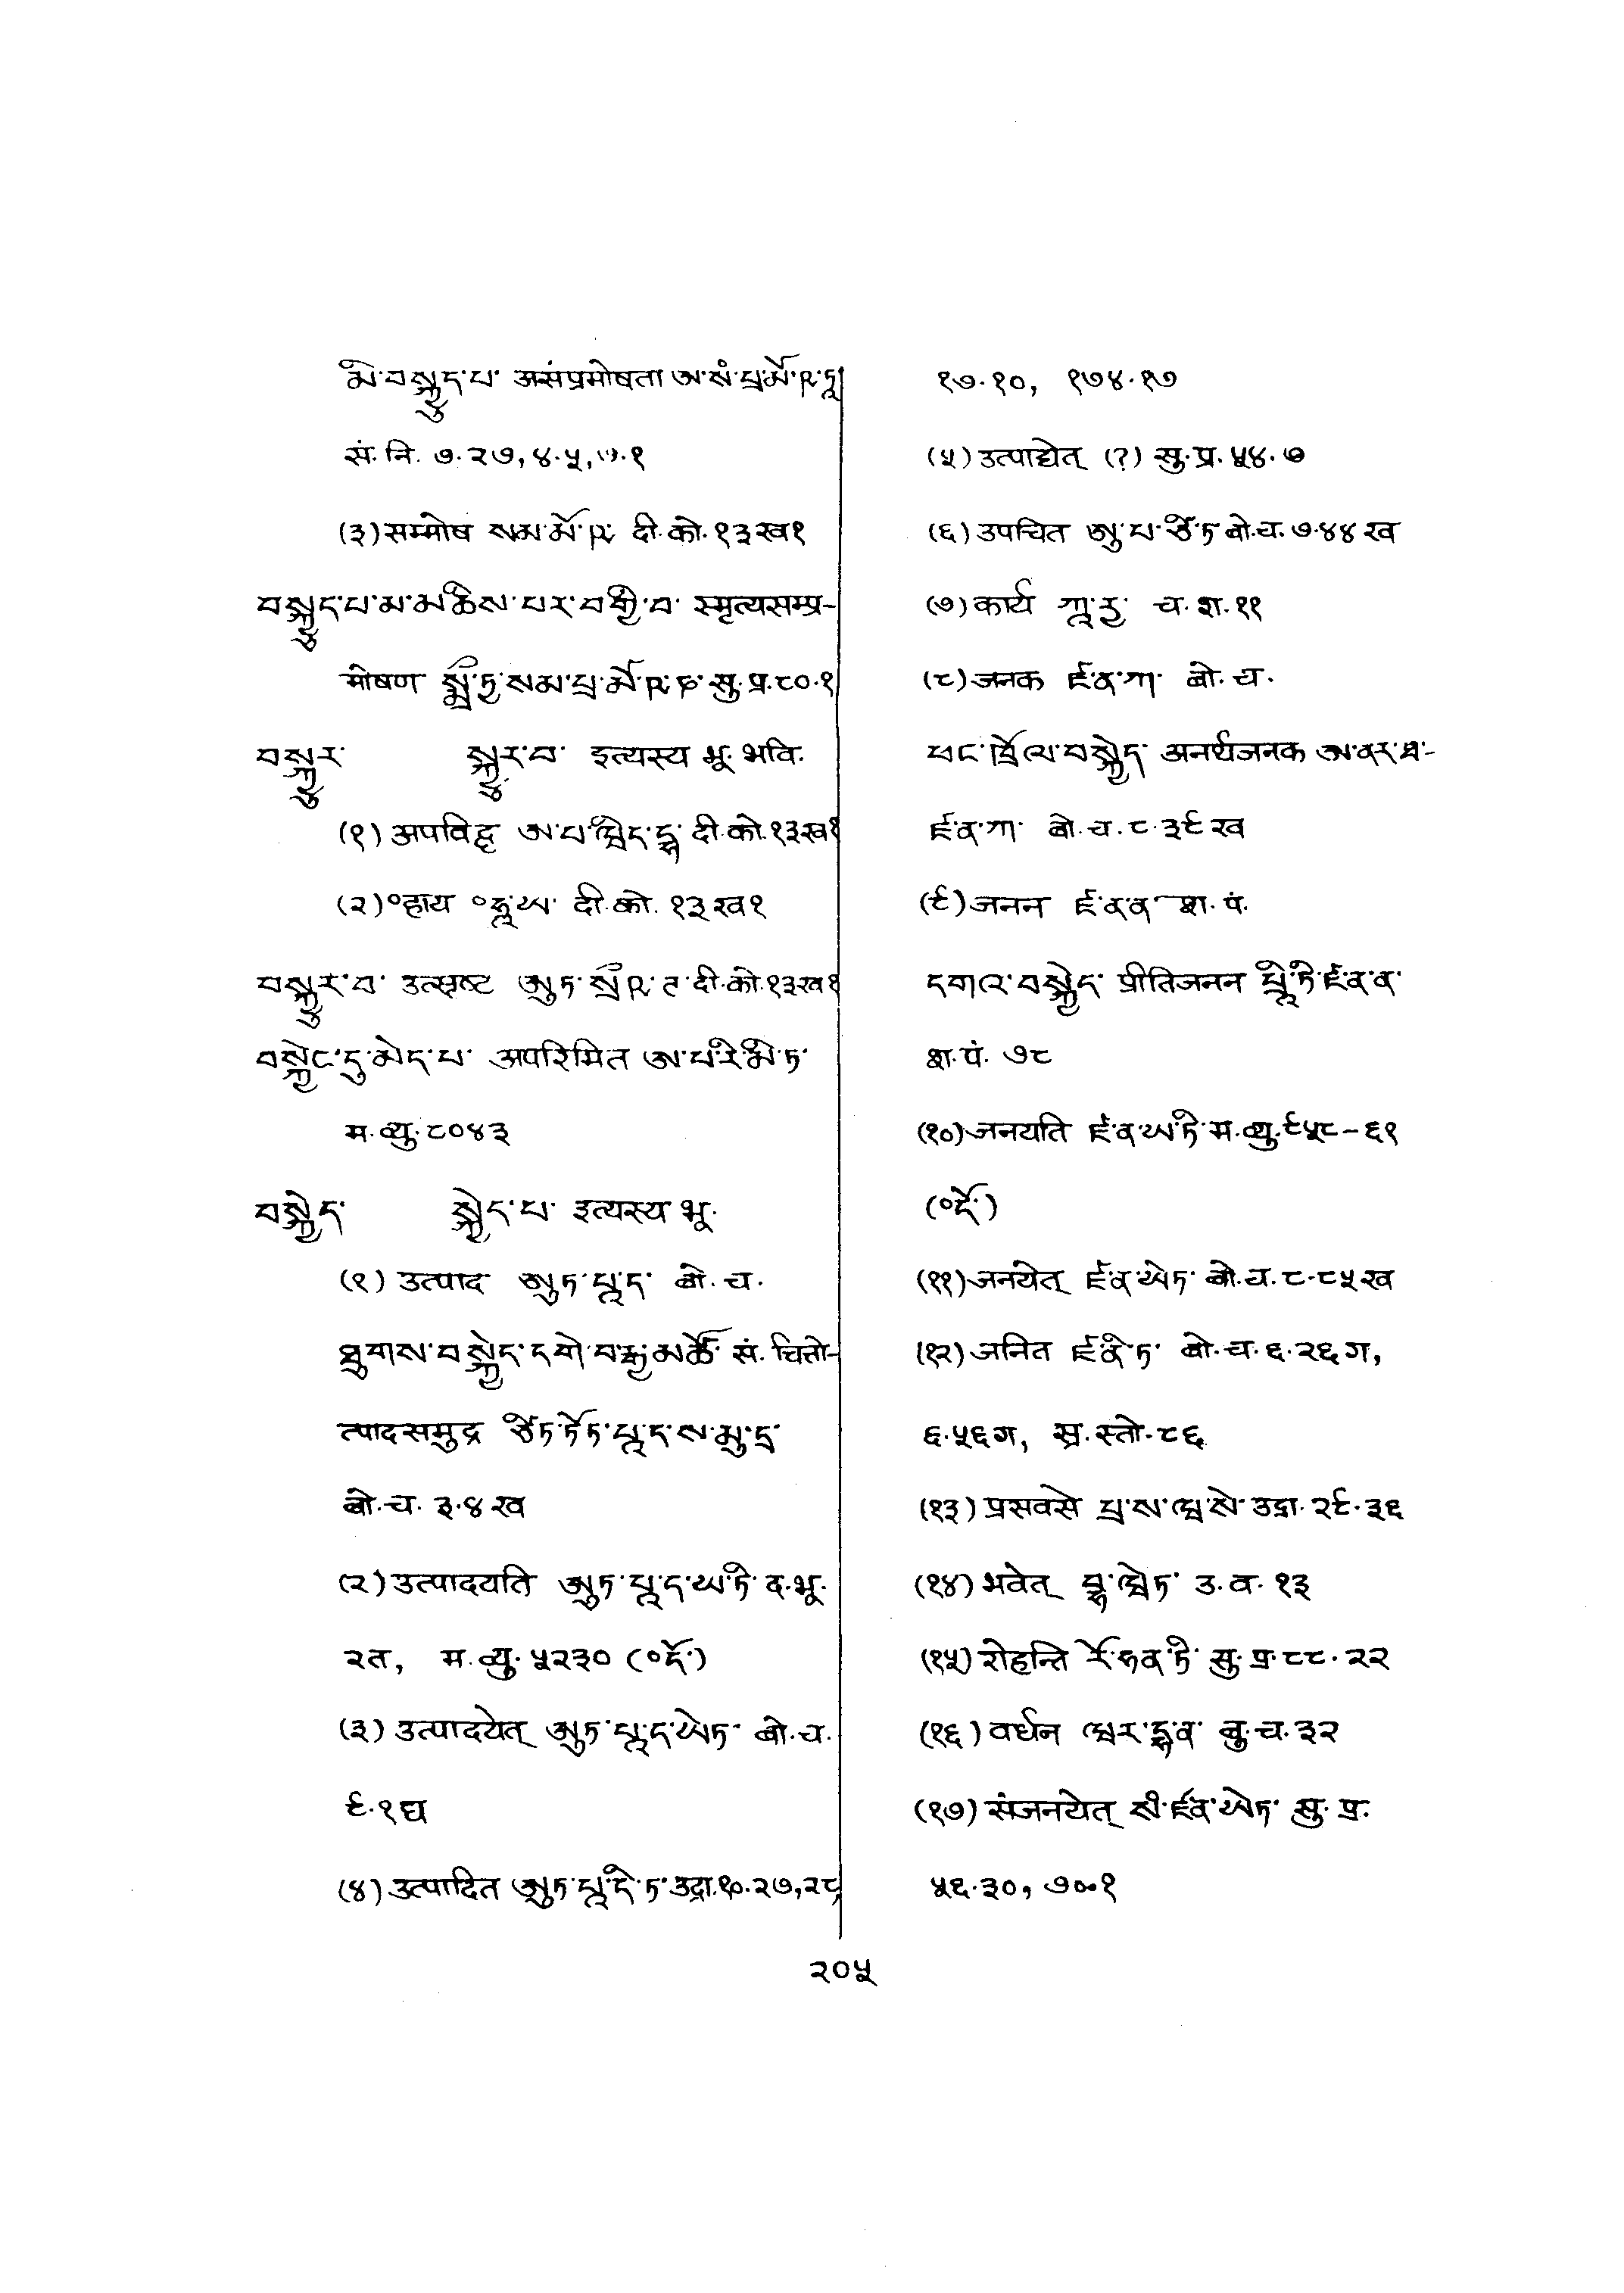 མི་བསྐྱུད་པ་ असंप्रमोषता ཨ་སཾ་པྲ་མོ་ཥ་ཏཱ
सं. नि. ७.२७, ४.५, ७.१
(३) सम्मोष སམ་མོ་ཥ་ दी.को. १३ख१
བསྐྱུད་པ་མ་མཆིས་པར་བགྱི་བ་ स्मृत्यसम्प्र-
मोषण སྨྲྀ་ཏྱ་སམ་པྲ་མོ་ཥ་ཎ་ सु.प्र. ८०.१
བསྐྱུར་ སྐྱུར་བ་ इत्यस्य भू. भवि.
(१) अपविद्ध ཨ་པ་ཝིད་དྷ་ दी.को. १३ख१
(२) °हाय °ཧཱ་ཡ་ दी.को. १३ख१
བསྐྱུར་བ་ उत्सृष्ट ཨུཏ་སྲྀ་ཥ་ཊ་ दी.को. १३ख१
བསྐྱེང་དུ་མེད་པ་ अपरिमित ཨ་པ་རི་མི་ཏ་
म.व्यु. ८०४३
བསྐྱེད་ སྐྱེད་པ་ इत्यस्य भू.
(१) उत्पाद ཨུཏ་པཱ་ད་ बो.च.
ཐུགས་བསྐྱེད་དགེ་བརྒྱ་མཚོ་ सं. चित्तो-
त्पादसमुद्र ཙིཏ་ཏོཏ་པཱ་ད་ས་མུ་དྲ་
बो.च. ३.४ख
(२) उत्पादयति ཨུཏ་པཱ་ད་ཡ་ཏི་ द.भू.
२त, म.व्यु. ५२३० (°དོ་)
(३) उत्पादयेत् ཨུཏ་པཱ་ད་ཡེཏ་ बो.च.
९.१घ
(४) उत्पादित ཨུཏ་པཱ་དི་ཏ་ उद्रा. १०.२७, २८,
१७.१०, १७४.१७
(५) उत्पाद्येत् (?) सु.प्र. ५४.७
(६) उपचित ཨུ་པ་ཙི་ཏ बो.च. ७.४४ख
(७) कार्य ཀཱ་རྱ་ च.श. ११
(८) जनक ཛ་ན་ཀ་ बो.च.
ཕང་ཁྲོལ་བསྐྱེད་ अनर्थजनक ཨ་ནར་ཐ་-
ཛ་ན་ཀ་ बो.च. ८.३९ख
(९) जनन ཛ་ན་ན་ श.पं.
དགའ་བསྐྱེད་ प्रीतिजनन པྲཱི་ཏི་ཛ་ན་ན་
श.पं. ७८
(१०) जनयति ཛ་ན་ཡ་ཏི་ म.व्यु. ९५८-६१
(°དོ་)
(११) जनयेत् ཛ་ན་ཡེཏ་ बो.च. ८.८५ख
(१२) जनित ཛ་ནི་ཏ་ बो.च. ६.२६ग,
६.५६ग, स्र.स्तो. ८६
(१३) प्रसवसे པྲ་ས་ཝ་སེ་ उद्रा. २९.३६
(१४) भवेत् བྷ་ཝེཏ་ उ.व. १३
(१५) रोहन्ति རོ་ཧན་ཏི་ सु.प्र. ८८.२२
(१६) वर्धन ཝར་དྷ་ན་ बु.च. ३२
(१७) संजनयेत् སཾ་ཛ་ན་ཡེཏ་ सु.प्र.
५६.३०, ७०.१
२०५